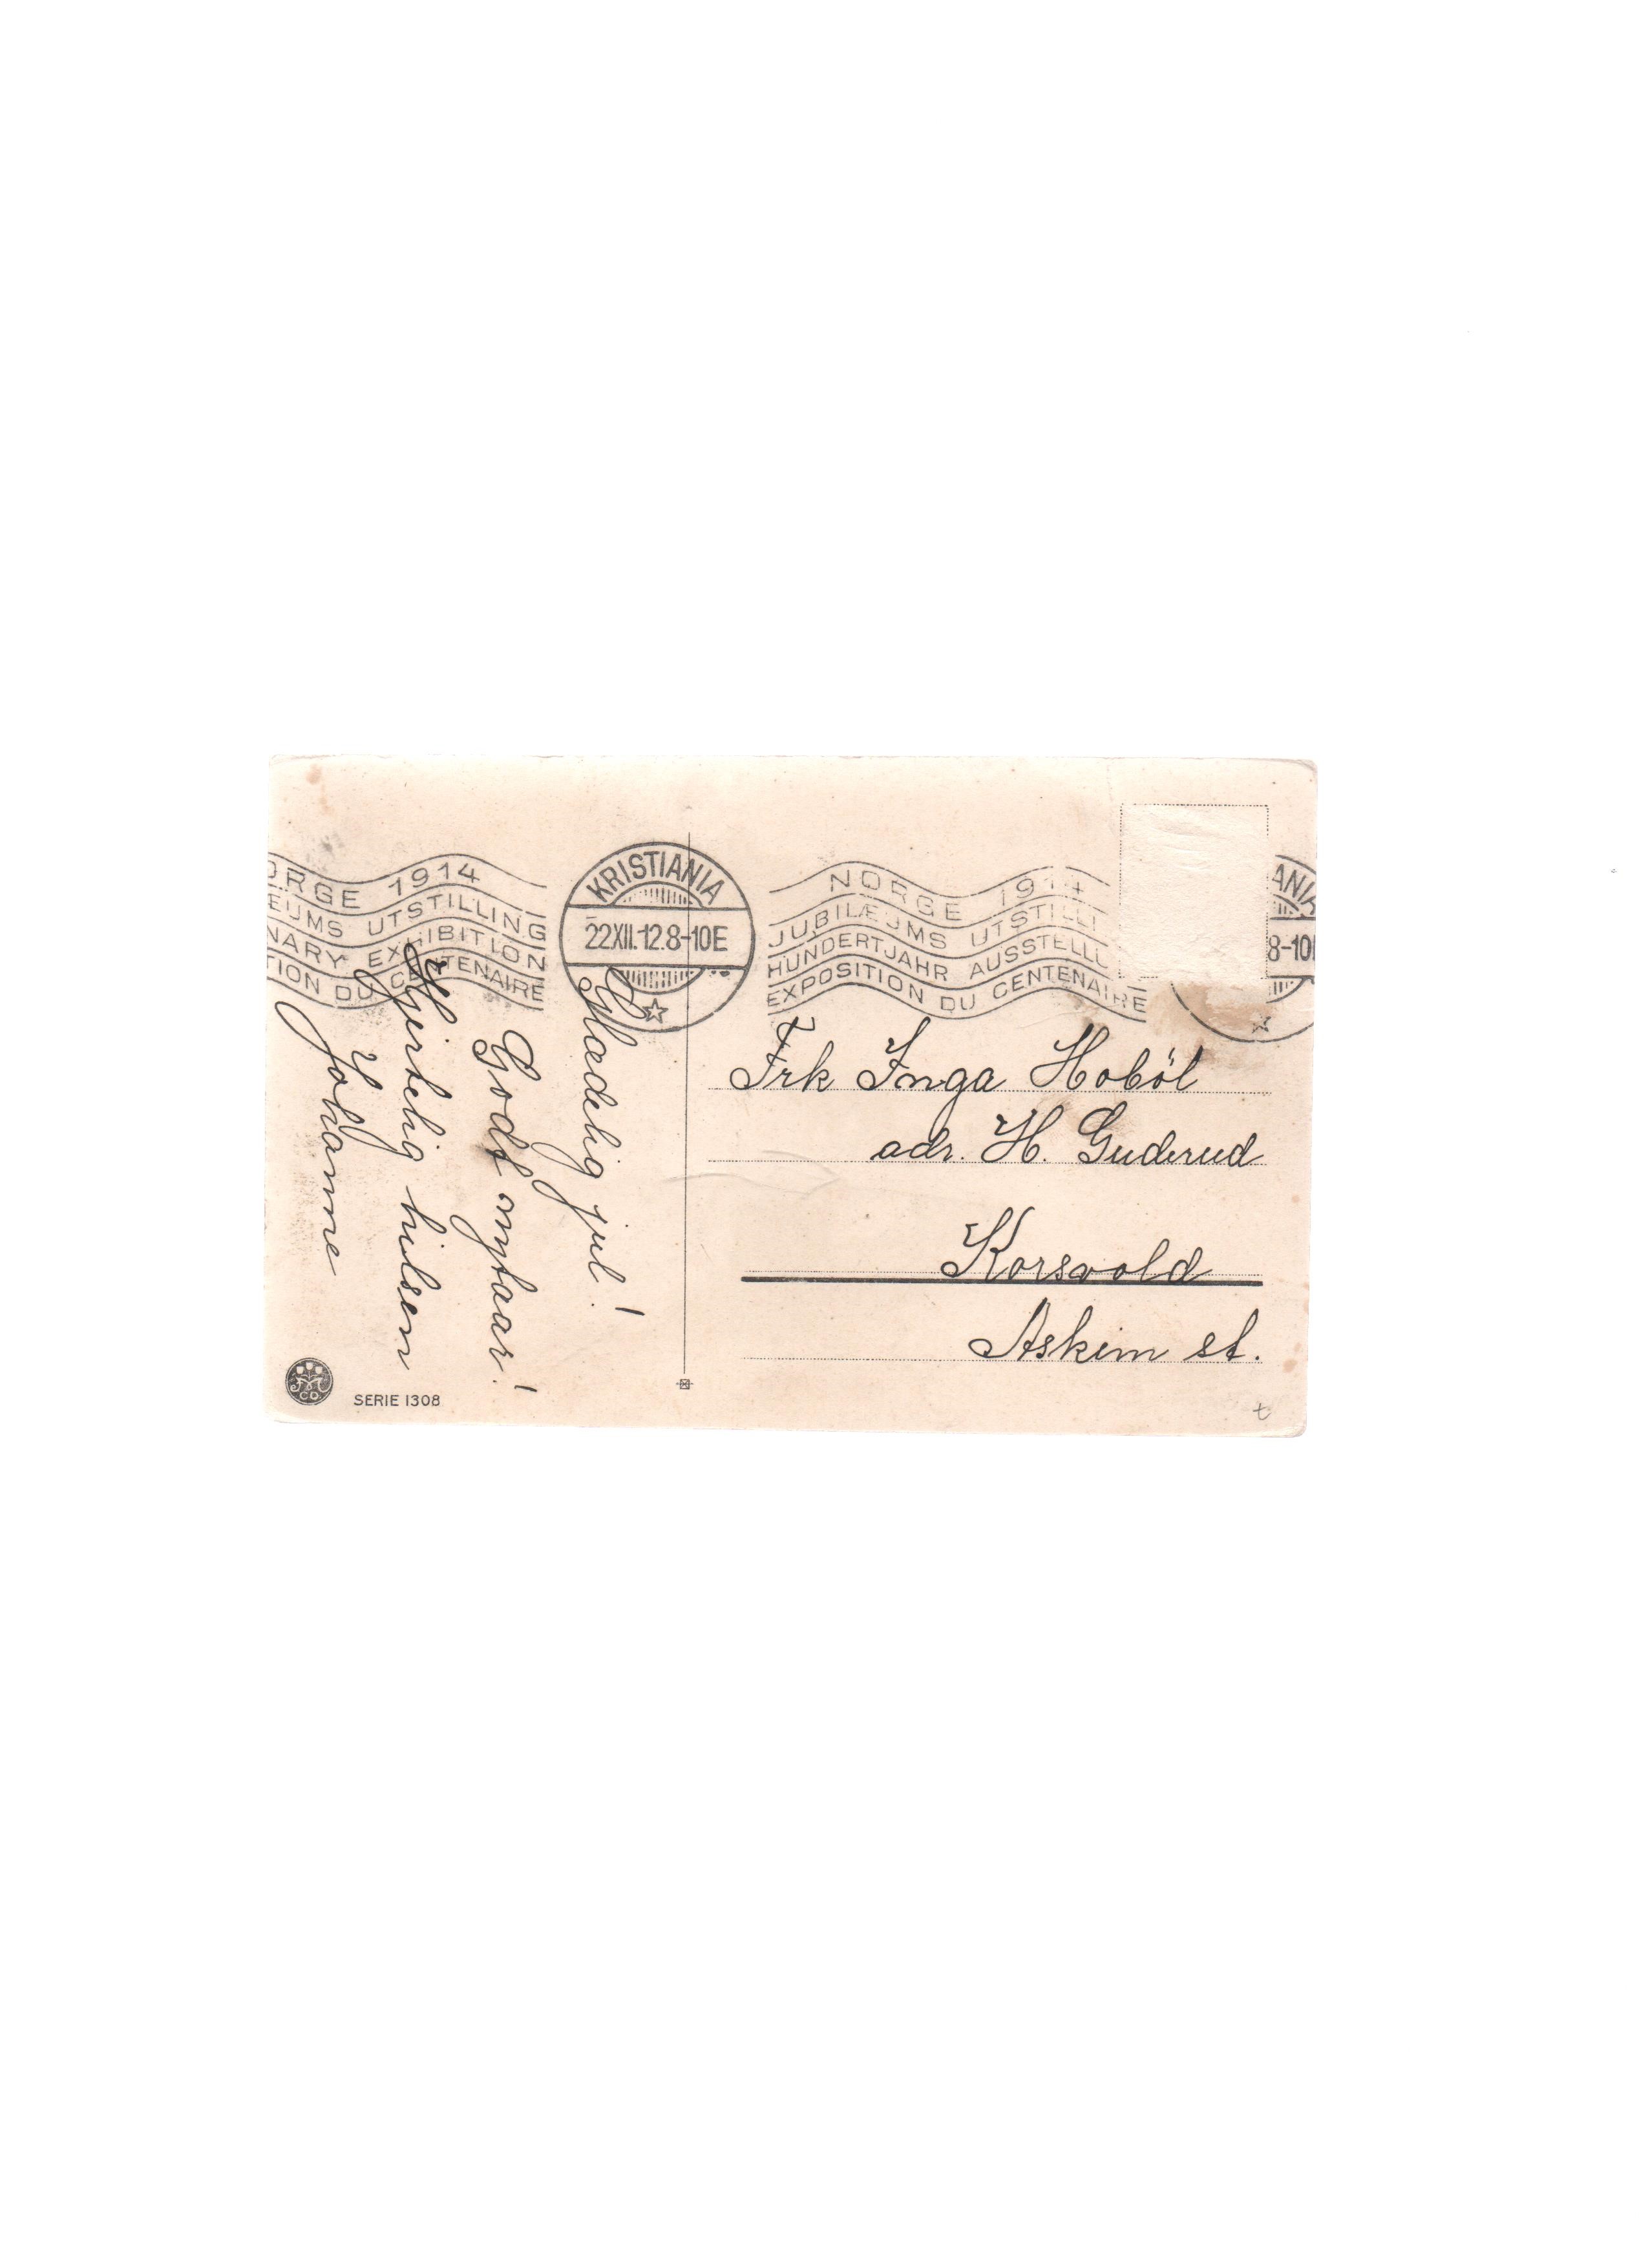 ORGE 1914
ÆUMS UTSTILLING
NARY EXHIBITION
TION DU CENTENAIRE
KRISTIANIA
22XII.12.8-10E
NORGE 1914
JUBILÆUMS UTSTILLI
HUNDERTJAHR AUSSTELLU
EXPOSITION DU CENTENAIRE
ANIA
8-10
Glædelig jul!
Godt nytaar!
Hjertelig hilsen
Johanne
Frk Inga Hoböl
adr. H. Guderud
Korsvold
Askim st.
M
CO
SERIE 1308
t